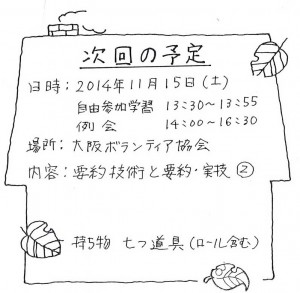 次回の予定
日時：2014年11月15日(土)
自由参加学習 13:30～13:55
例会 14:00～16:30
場所：大阪ボランティア協会
内容：要約技術と要約・実技②
持ち物 七つ道具(ロール含む)